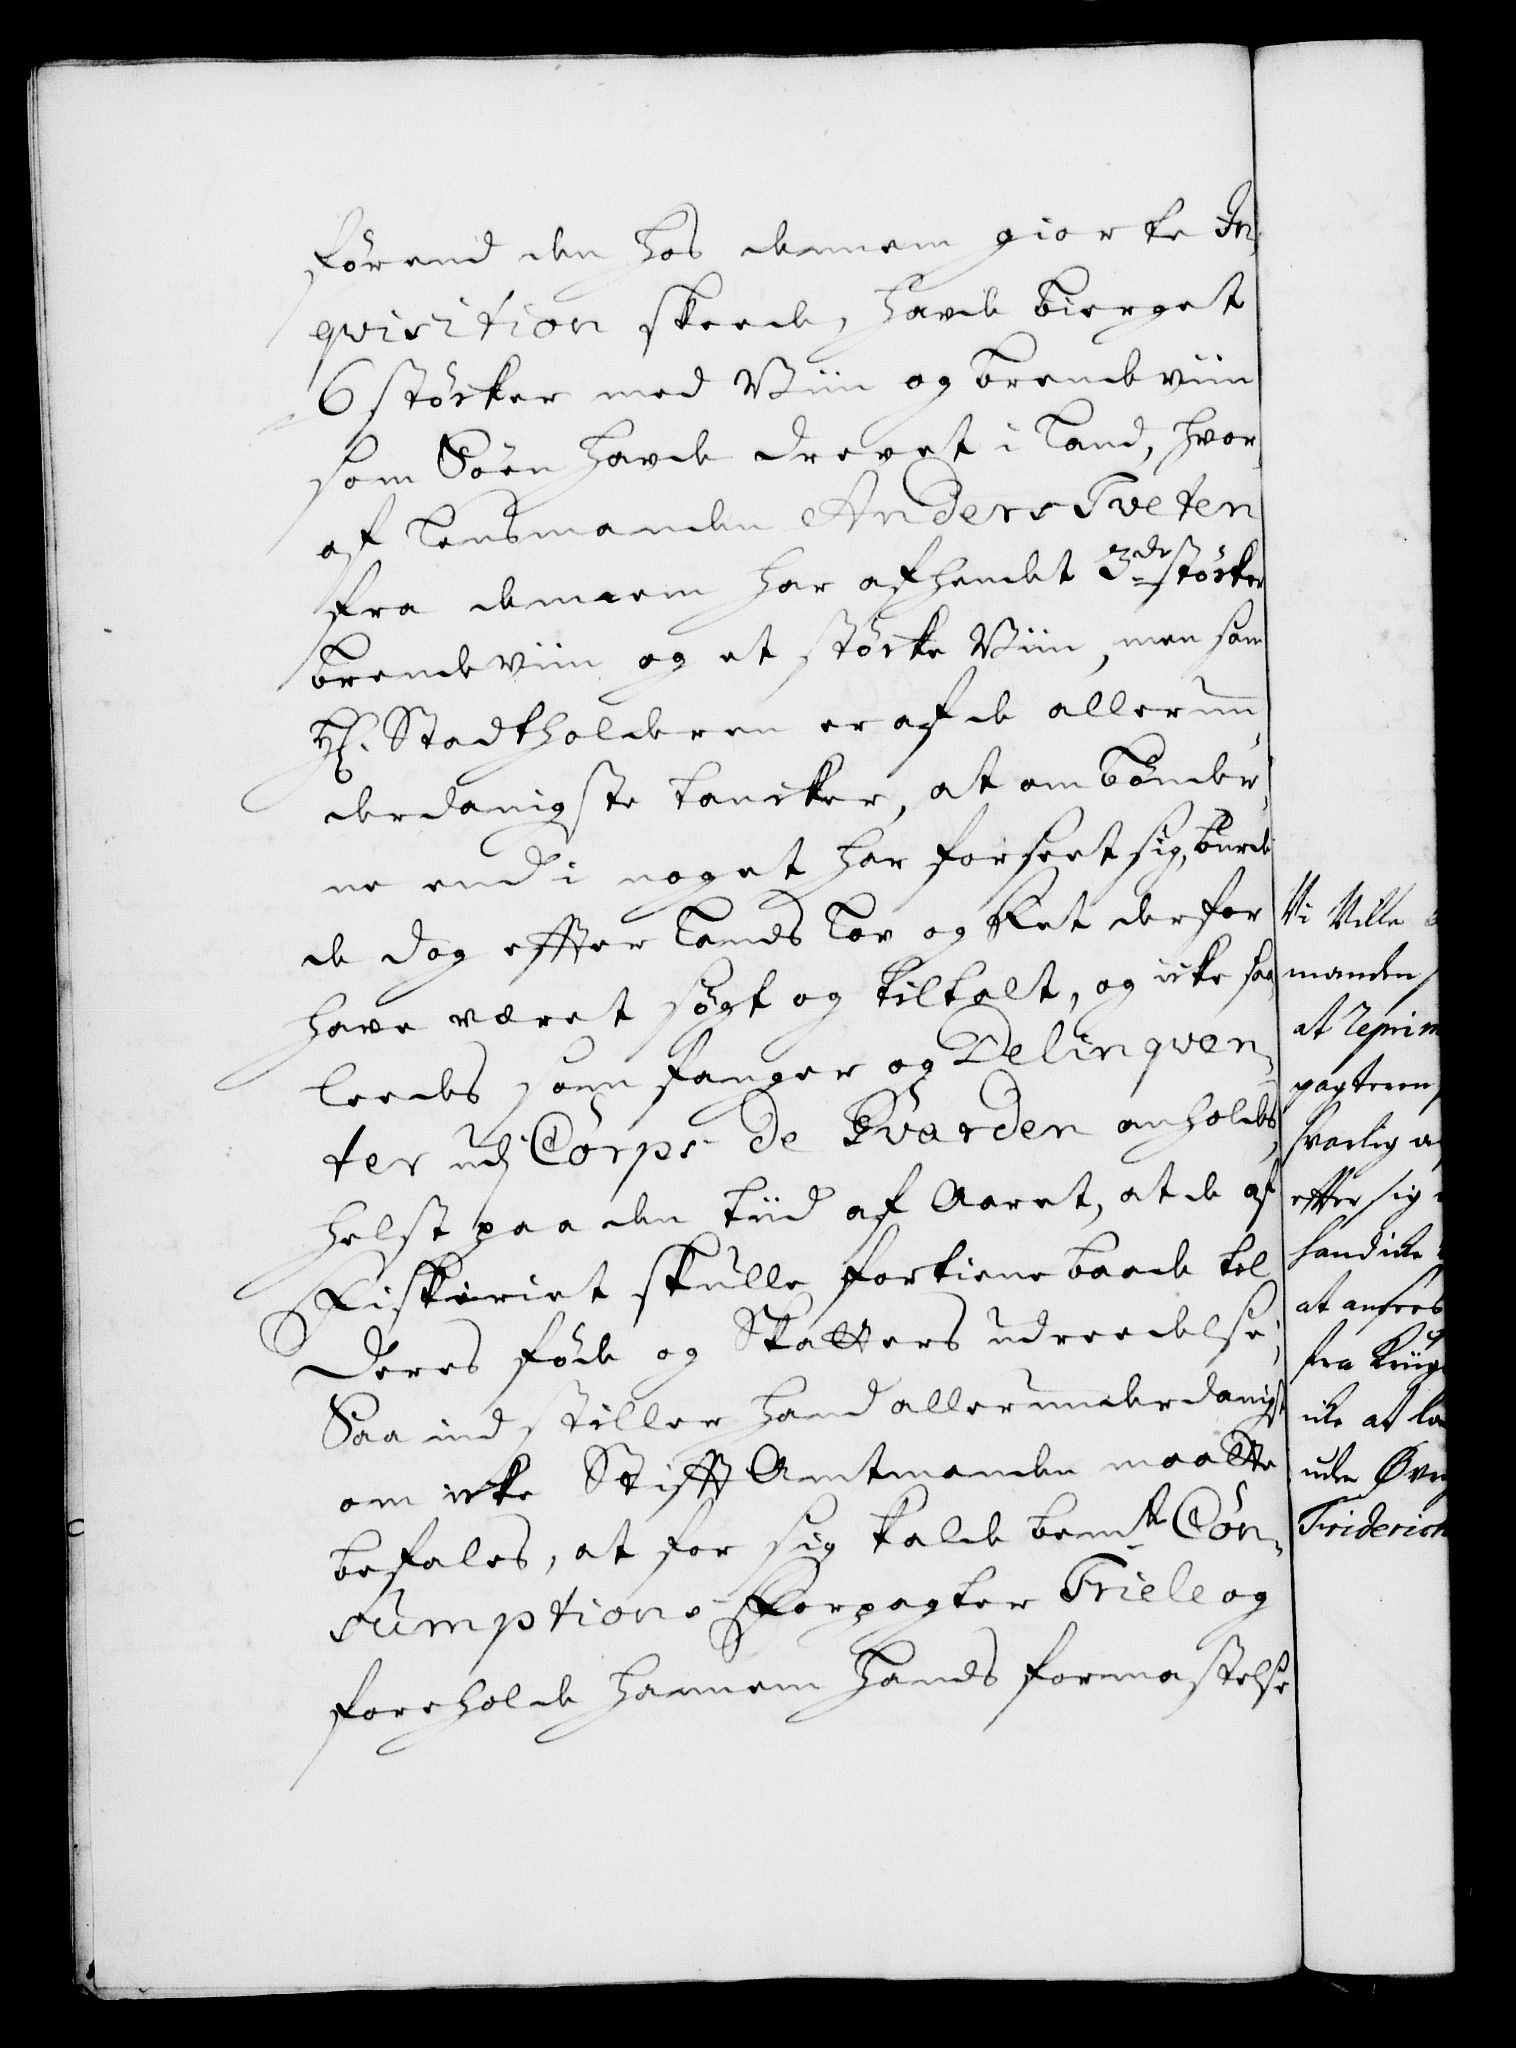 förend den hos dennem giorte In-
qvisition skeede, havde bierget
6 störker med Viin og brendeviin
som Söen havde drevet i Land, hvor
af Lensmanden Anders Tveten
fra dennem har afhendet 3de störker
brendeviin og et störke Viin, men som
H. Stadtholderen er af de allerun-
derdanigste tancker, at om bönder-
ne end i noget har forseet sig, burde
de dog effter Lands Lov og Ret derfor
have været sögt og tiltalt, og icke saa-
leedes som fanger og Delinqven-
ter udj Corps de Gvarden anholdes,
helst paa den tiid af Aaret, at de af
Fiskeriet skulle fortiene baade til
deres föde og Skatters udreedelse;
Saa indstiller hand allerunderdanigst
om icke Stifft Amtmanden maatte
befales, at for sig kalde bemte Con-
sumptions Forpagter Friele og
foreholde hannem hands formastelse
Vi Ville
manden
at Reprim
pagteren
svarlig
effter sig
hand icke
at anfees
fra Krüge
icke at
uden Övr
Friderich